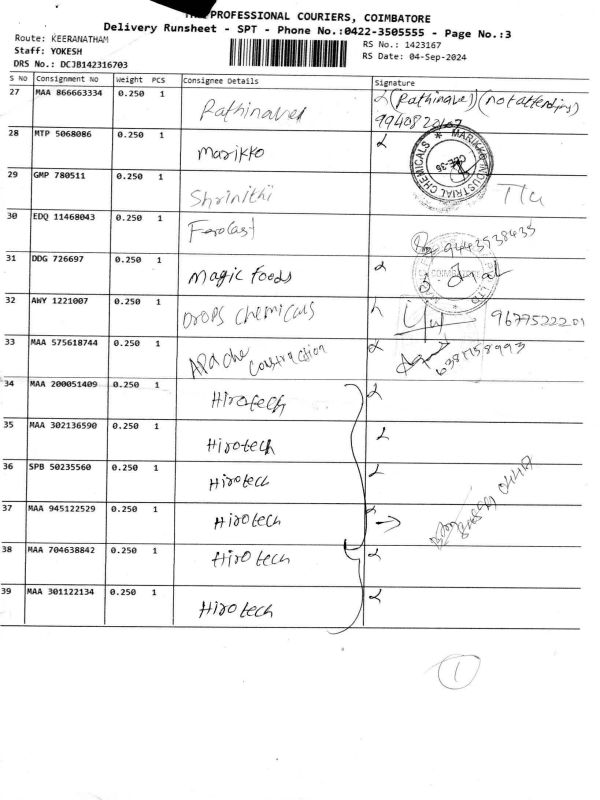 THE PROFESSIONAL COURIERS, COIMBATORE
Delivery Runsheet - SPT - Phone No.:0422-3505555 - Page No.:3
Route: KEERANATHAM
RS No.: 1423167
Staff: YOKESH
RS Date: 04-Sep-2024
DRS No.: DCJB142316703
S No Consignment No Weight PCS Consignee Details Signature
27 MAA 866663334 0.250 1 Rathinavel (Rathinavel) (not attending)
28 MTP 5068086 0.250 1 Marikko MARIKKO INDUSTRIAL CHEMICALS CBE-35
29 GMP 780511 0.250 1 Shrinithi
30 EDQ 11468043 0.250 1 Ferocast 9443538435
31 DDG 726697 0.250 1 Magic foods COIMBATORE
32 AWY 1221007 0.250 1 Drops chemicals 9677522201
33 MAA 575618744 0.250 1 Apache Construction 6381158993
34 MAA 200051409 0.250 1 Hirotech
35 MAA 302136590 0.250 1 Hirotech
36 SPB 50235560 0.250 1 Hirotech
37 MAA 945122529 0.250 1 Hirotech
38 MAA 704638842 0.250 1 Hirotech
39 MAA 301122134 0.250 1 Hirotech
1